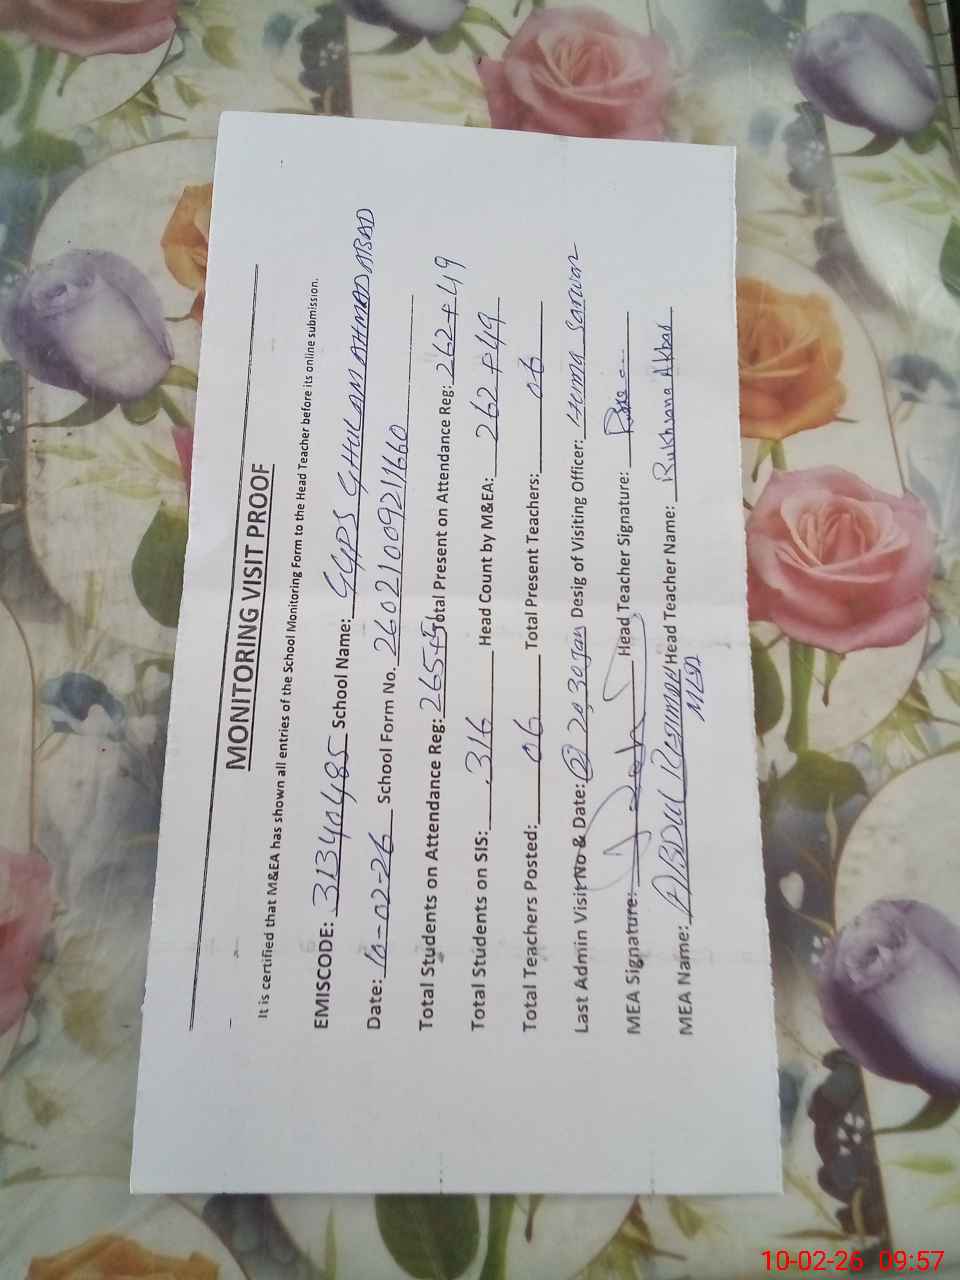 MONITORING VISIT PROOF
It is certified that M&EA has shown all entries of the School Monitoring Form to the Head Teacher before its online submission.
EMISCODE: 31340485 School Name: GGPS GHULAM AHMAD ABAD
Date: 10-02-26 School Form No. 26021009211660
Total Students on Attendance Reg: 265+51 Total Present on Attendance Reg: 262+49
Total Students on SIS: 316 Head Count by M&EA: 262+49
Total Teachers Posted: 06 Total Present Teachers: 06
Last Admin Visit No & Date: 30 Jan Desig of Visiting Officer: Huma Sarwar
MEA Signature: Head Teacher Signature:
MEA Name: ABDUL REHMAN Head Teacher Name: Rukhsana Akbar
10-02-26 09:57